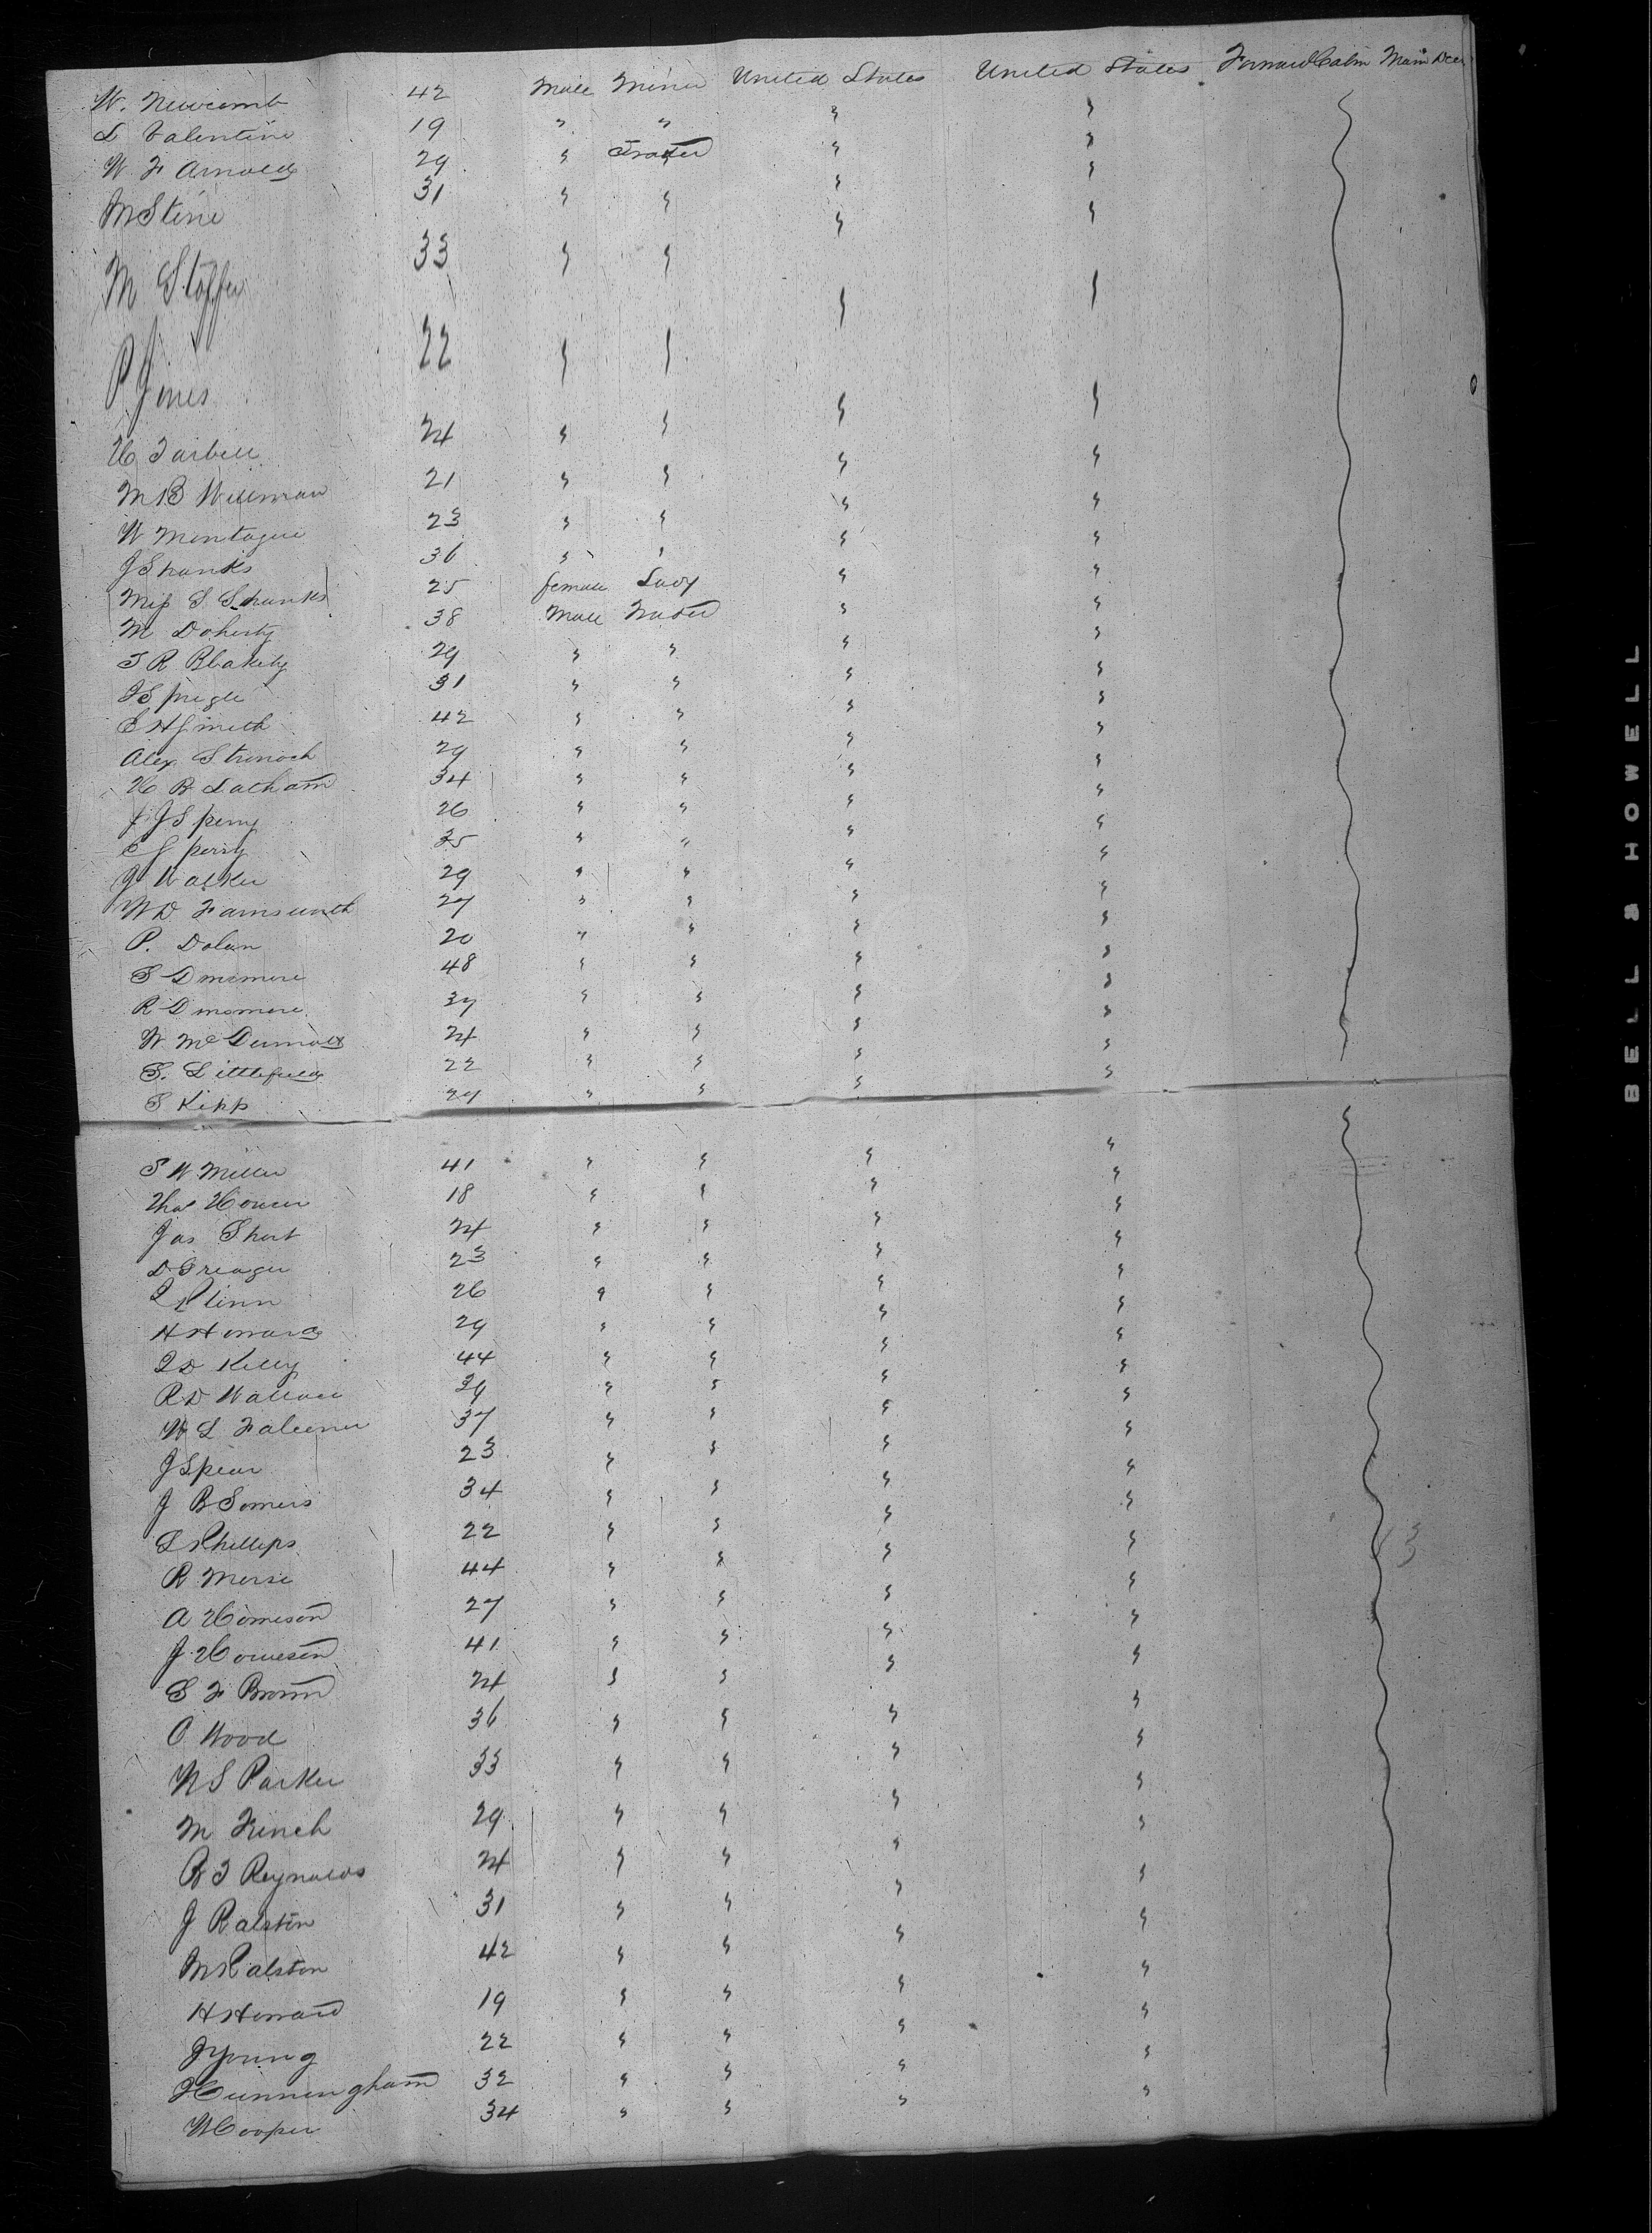 W. Newcomb 42 Male Miner United States United States Forward Cabin Main Deck
L Valentine 19 " " " "
W F Arnold 29 " Trader " "
M Stine 31 " " " "
M Stoffer 33 " " " "
P Jones 22 " " " "
H Tarbell 24 " " " "
M B Willman 21 " " " "
W Montague 23 " " " "
J Shanks 36 " " " "
Miss S Shanks 25 female Lady " "
M Doherty 38 Male Trader " "
T R Blakely 29 " " " "
31 " " " "
E H Smith 42 " " " "
Alex 29 " " " "
H B Latham 34 " " " "
J J Sperry 26 " " " "
E Sperry 35 " " " "
J Walker 29 " " " "
W D Farnsworth 27 " " " "
P. Dolan 20 " " " "
S Dinsmore 48 " " " "
R Dinsmore 37 " " " "
W McDermott 24 " " " "
S. Littlefield 22 " " " "
S Kipp 27 " " " "
S W Miller 41 " " " "
18 " " " "
Jas Short 24 " " " "
D 23 " " " "
26 " " " "
H Howard 29 " " " "
Kelly 44 " " " "
R D Wallace 39 " " " "
W L Falconer 37 " " " "
J Spear 23 " " " "
J B Somers 34 " " " "
S Phillips 22 " " " "
R Morse 44 " " " "
A 27 " " " "
J 41 " " " "
S F Brown 24 " " " "
O Wood 36 " " " "
W S Parker 33 " " " "
M Finch 29 " " " "
B T Reynolds 24 " " " "
J Ralston 31 " " " "
M Ralston 42 " " " "
H Howard 19 " " " "
J Young 22 " " " "
Cunningham 32 " " " "
W Cooper 34 " " " "
13
BELL & HOWELL